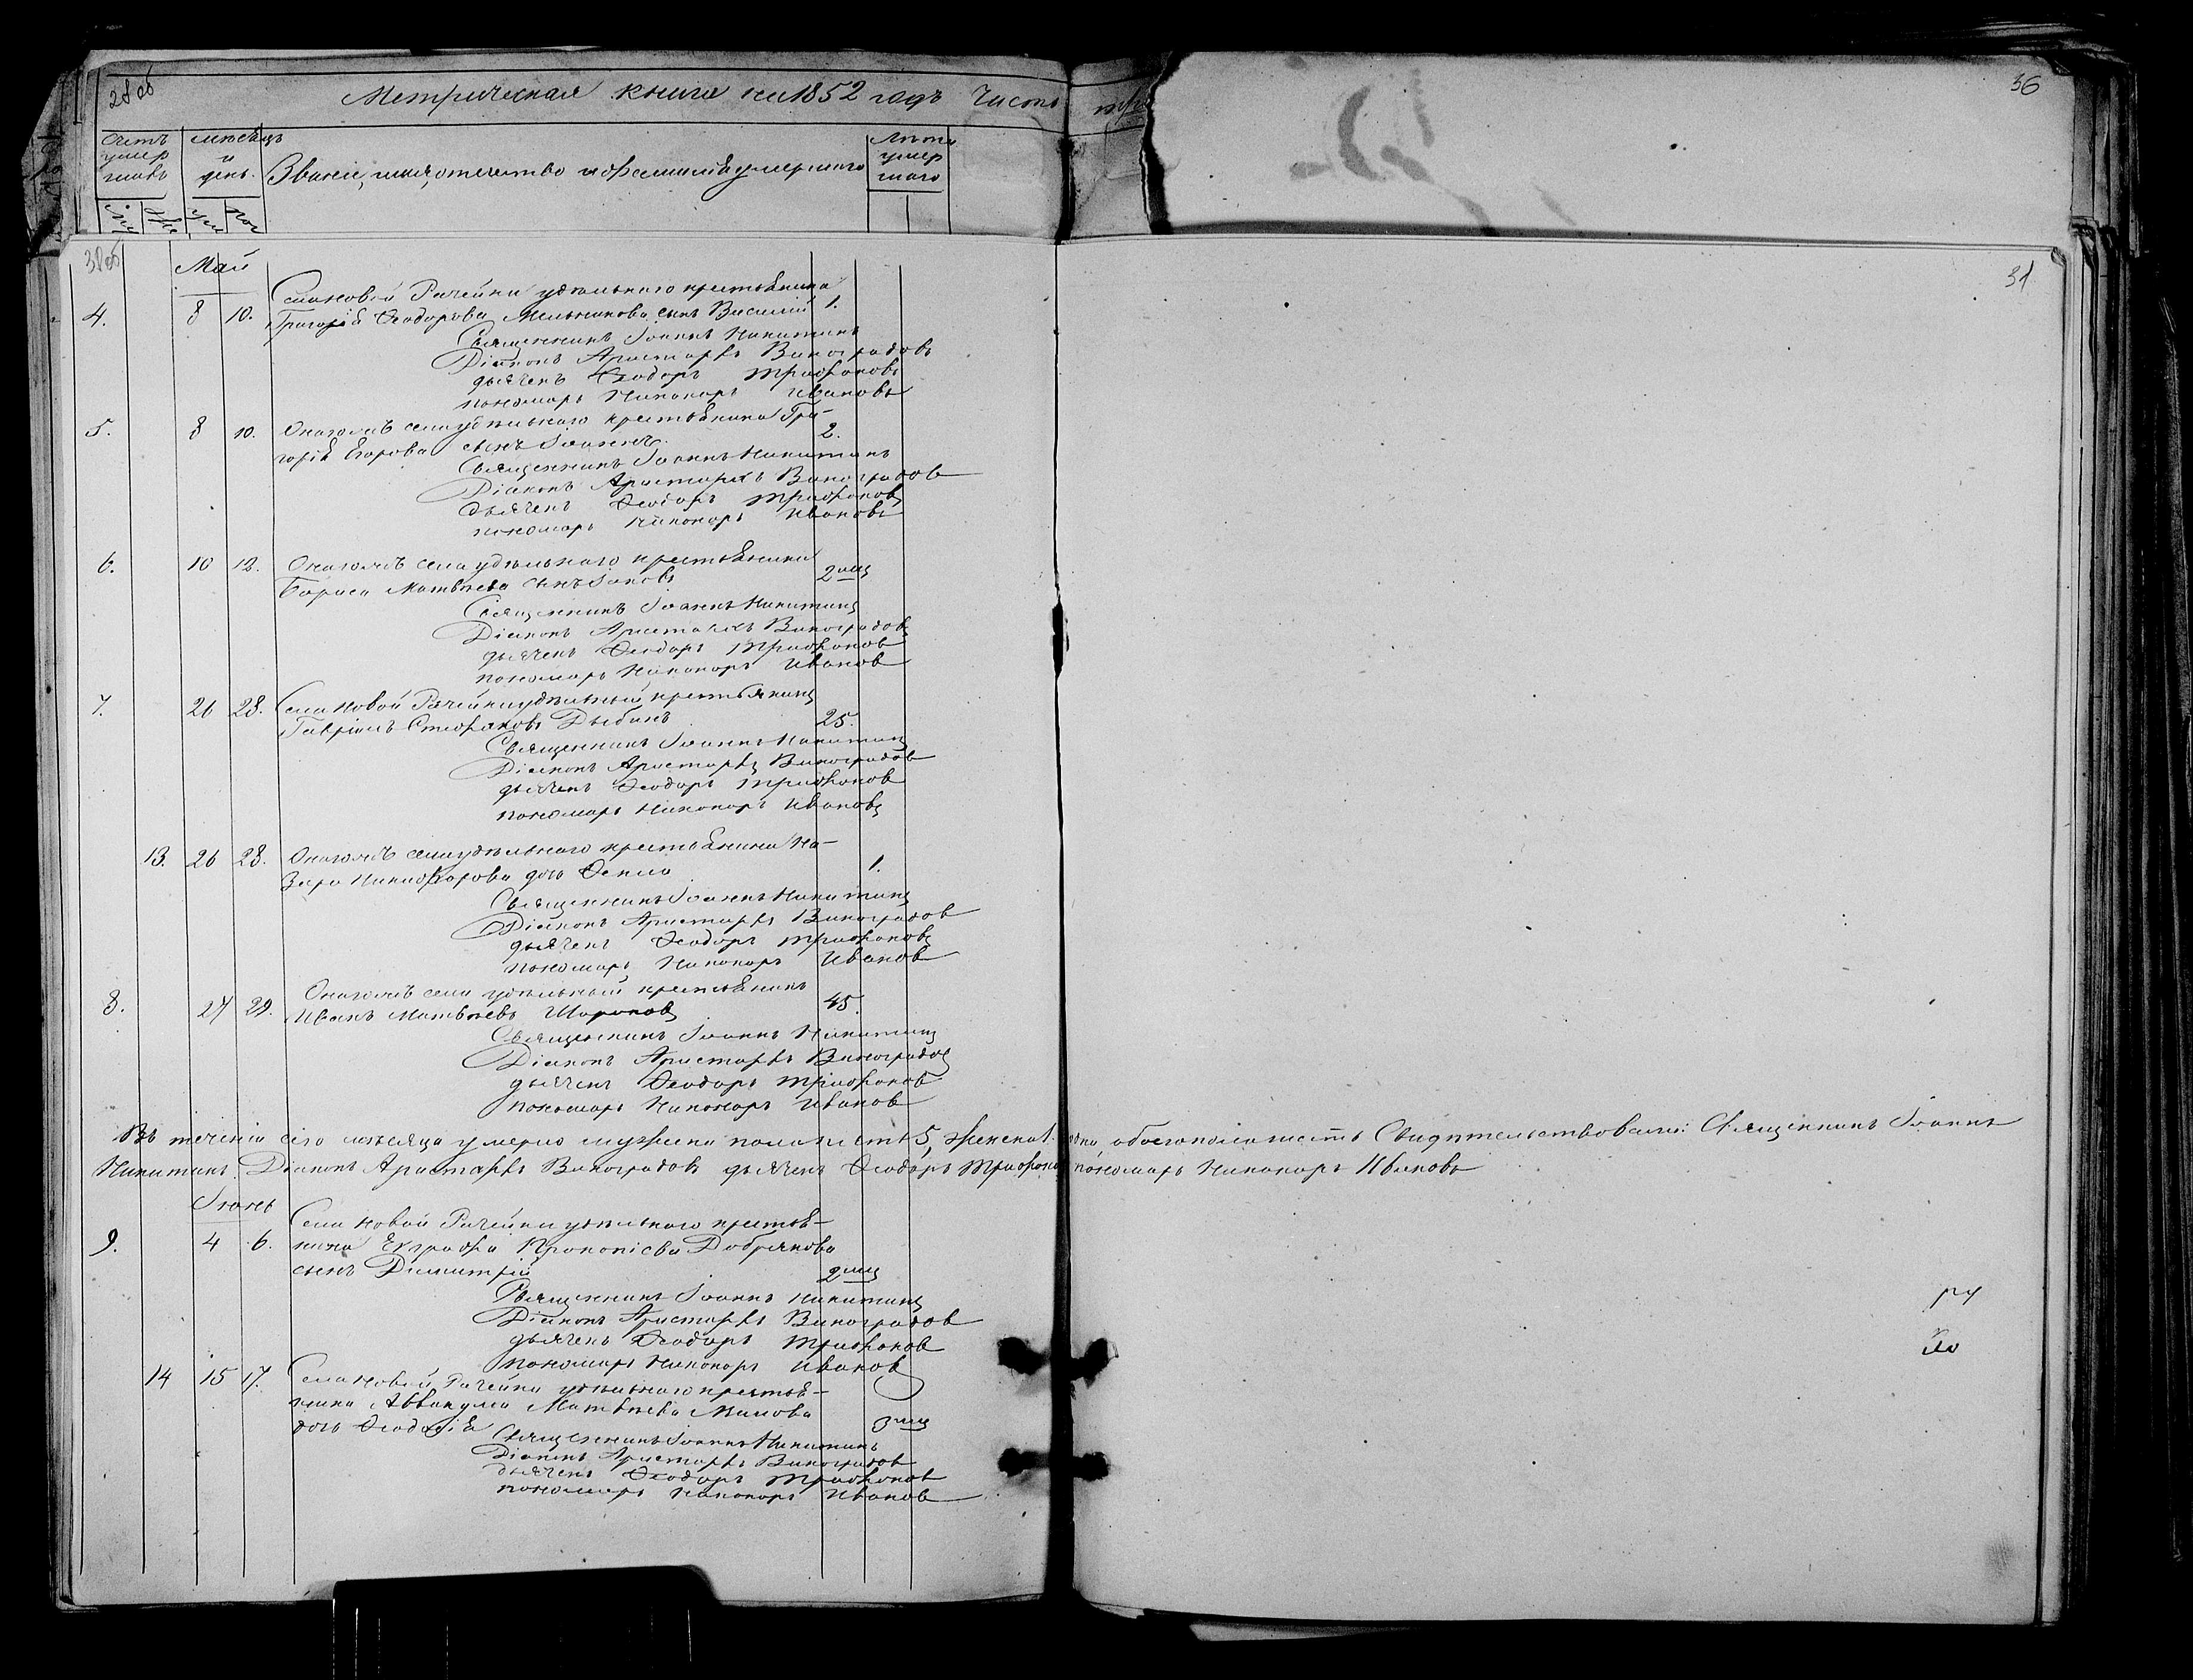 28 об
Метрическая книга на 1852 годъ Часть
36
Счетъ умершихъ
мѣсяцъ и день.
Званіе, имя, отчество и фамилія умершаго
Лѣта умершаго
31
Май
4. 8 10. Села Новой Рачейки удѣльнаго крестьянина
Григорія Ѳеодорова Мельникова сынъ Василій 1.
Священникъ Іоаннъ Никитинъ
Діаконъ Аристархъ Виноградовъ
дьячекъ Ѳеодоръ Трифоновъ
пономарь Никаноръ Ивановъ
5. 8 10. Онагожъ села удѣльнаго крестьянина Гри-
горія Егорова сынъ Іоаннъ. 2.
Священникъ Іоаннъ Никитинъ
Діаконъ Аристархъ Виноградовъ
дьячекъ Ѳеодоръ Трифоновъ
пономарь Никаноръ Ивановъ
6. 10 12. Онагожъ села удѣльнаго крестьянина
Бориса Матвѣева сынъ Іаковъ 2 мц
Священникъ Іоаннъ Никитинъ
Діаконъ Аристархъ Виноградовъ
дьячекъ Ѳеодоръ Трифоновъ
пономарь Никаноръ Ивановъ
7. 26 28. Села Новой Рачейки удѣльный крестьянинъ
Гавріилъ Стефановъ Дыбинъ 25.
Священникъ Іоаннъ Никитинъ
Діаконъ Аристархъ Виноградовъ
дьячекъ Ѳеодоръ Трифоновъ
пономарь Никаноръ Ивановъ
13. 26 28. Онагожъ села удѣльнаго крестьянина На-
зара Никифорова дочь Ѳекла 1.
Священникъ Іоаннъ Никитинъ
Діаконъ Аристархъ Виноградовъ
дьячекъ Ѳеодоръ Трифоновъ
пономарь Никаноръ Ивановъ
8. 27 29. Онагожъ села удѣльный крестьянинъ
Иванъ Матвѣевъ 45.
Священникъ Іоаннъ Никитинъ
Діаконъ Аристархъ Виноградовъ
дьячекъ Ѳеодоръ Трифоновъ
пономарь Никаноръ Ивановъ
Въ теченіи сего мѣсяца умерло мужеска пола пять 5, женска 1. одна, обоего пола шесть Свидѣтельствовали: Священникъ Іоаннъ
Никитинъ Діаконъ Аристархъ Виноградовъ дьячекъ Ѳеодоръ Трифоновъ пономарь Никаноръ Ивановъ
Іюнь
9. 4 6. Села Новой Рачейки удѣльнаго крестья-
нина Евграфа Прокопіева Добрянова
сынъ Димитрій 2 мц
Священникъ Іоаннъ Никитинъ
Діаконъ Аристархъ Виноградовъ
дьячекъ Ѳеодоръ Трифоновъ
пономарь Никаноръ Ивановъ
14 15 17. Села Новой Рачейки удѣльнаго крестья-
нина Аввакума Матвѣева
дочь Ѳеодосія 3 мц
Священникъ Іоаннъ Никитинъ
Діаконъ Аристархъ Виноградовъ
дьячекъ Ѳеодоръ Трифоновъ
пономарь Никаноръ Ивановъ